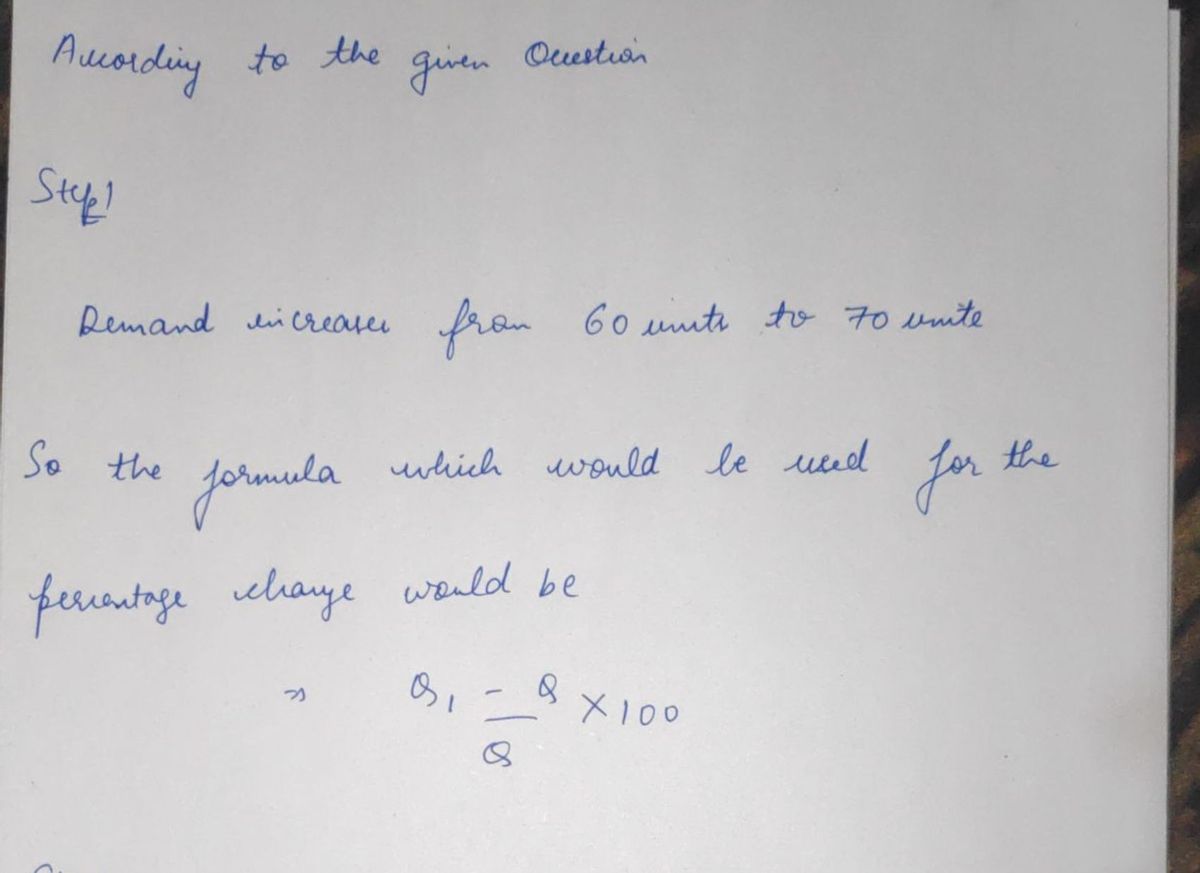 According to the given Question
Step 1
Demand increases from 60 units to 70 units
So the formula which would be used for the
percentage change would be
⇒ Q₁ - Q × 100
Q